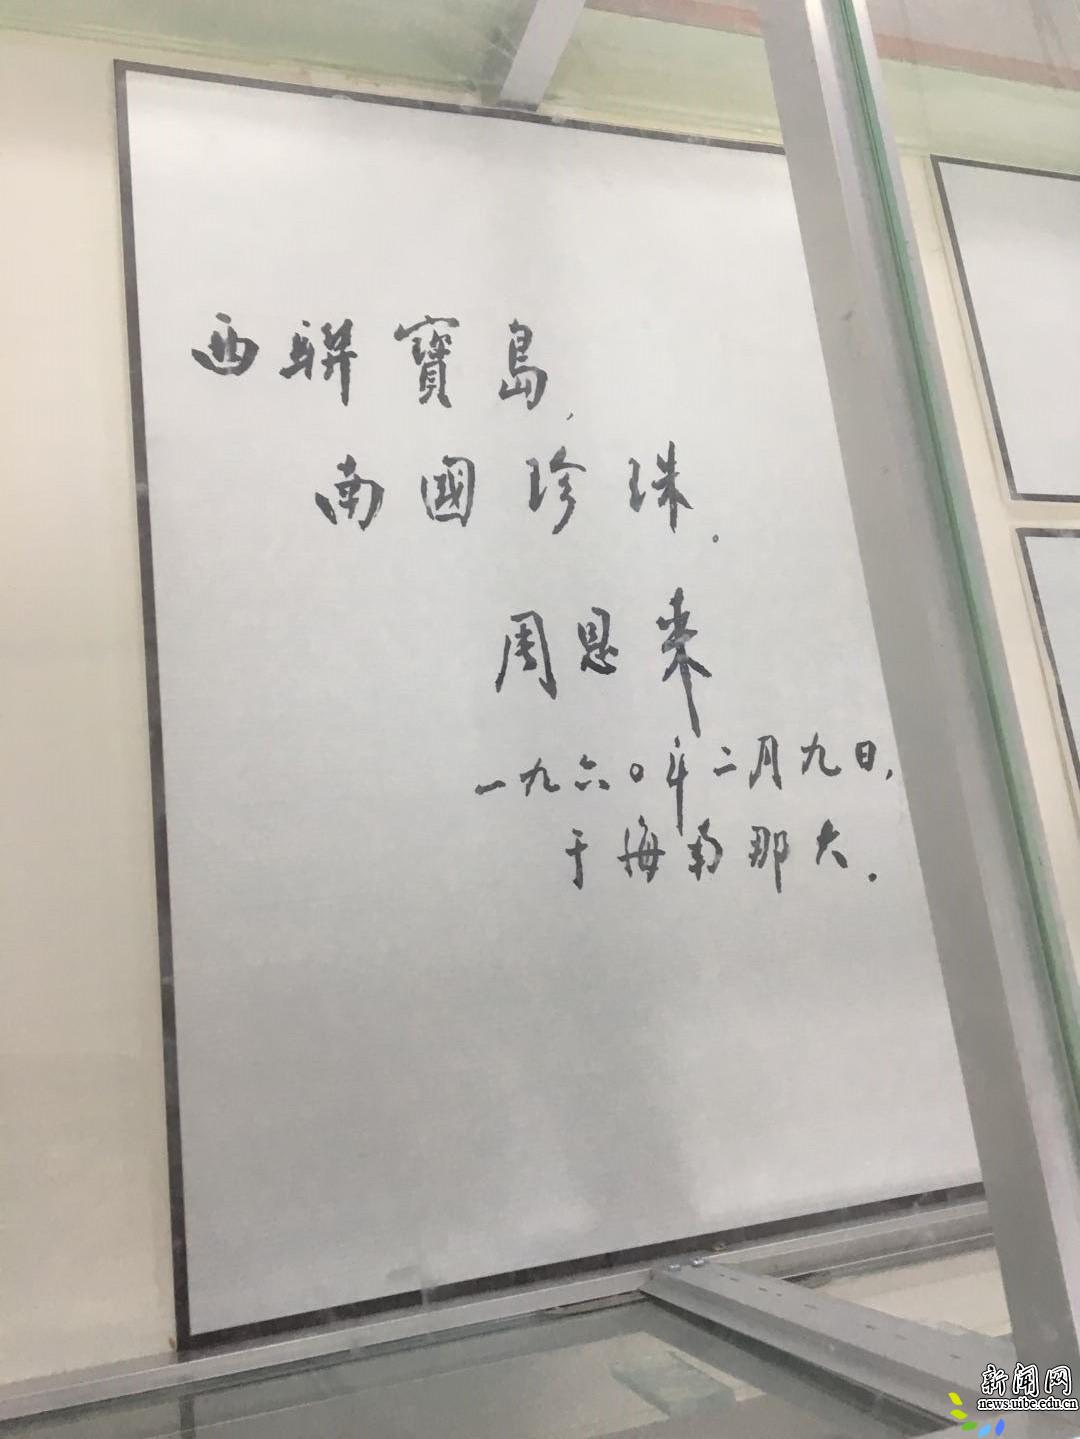 西聯寶島,
南國珍珠。
周恩来
一九六〇年二月九日,
于海南那大.
新闻网
news.uibe.edu.cn